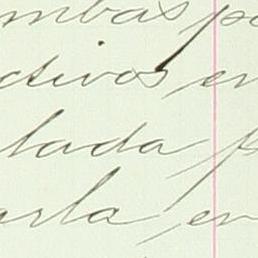 mbas p
ctivos en
lada p
arla en